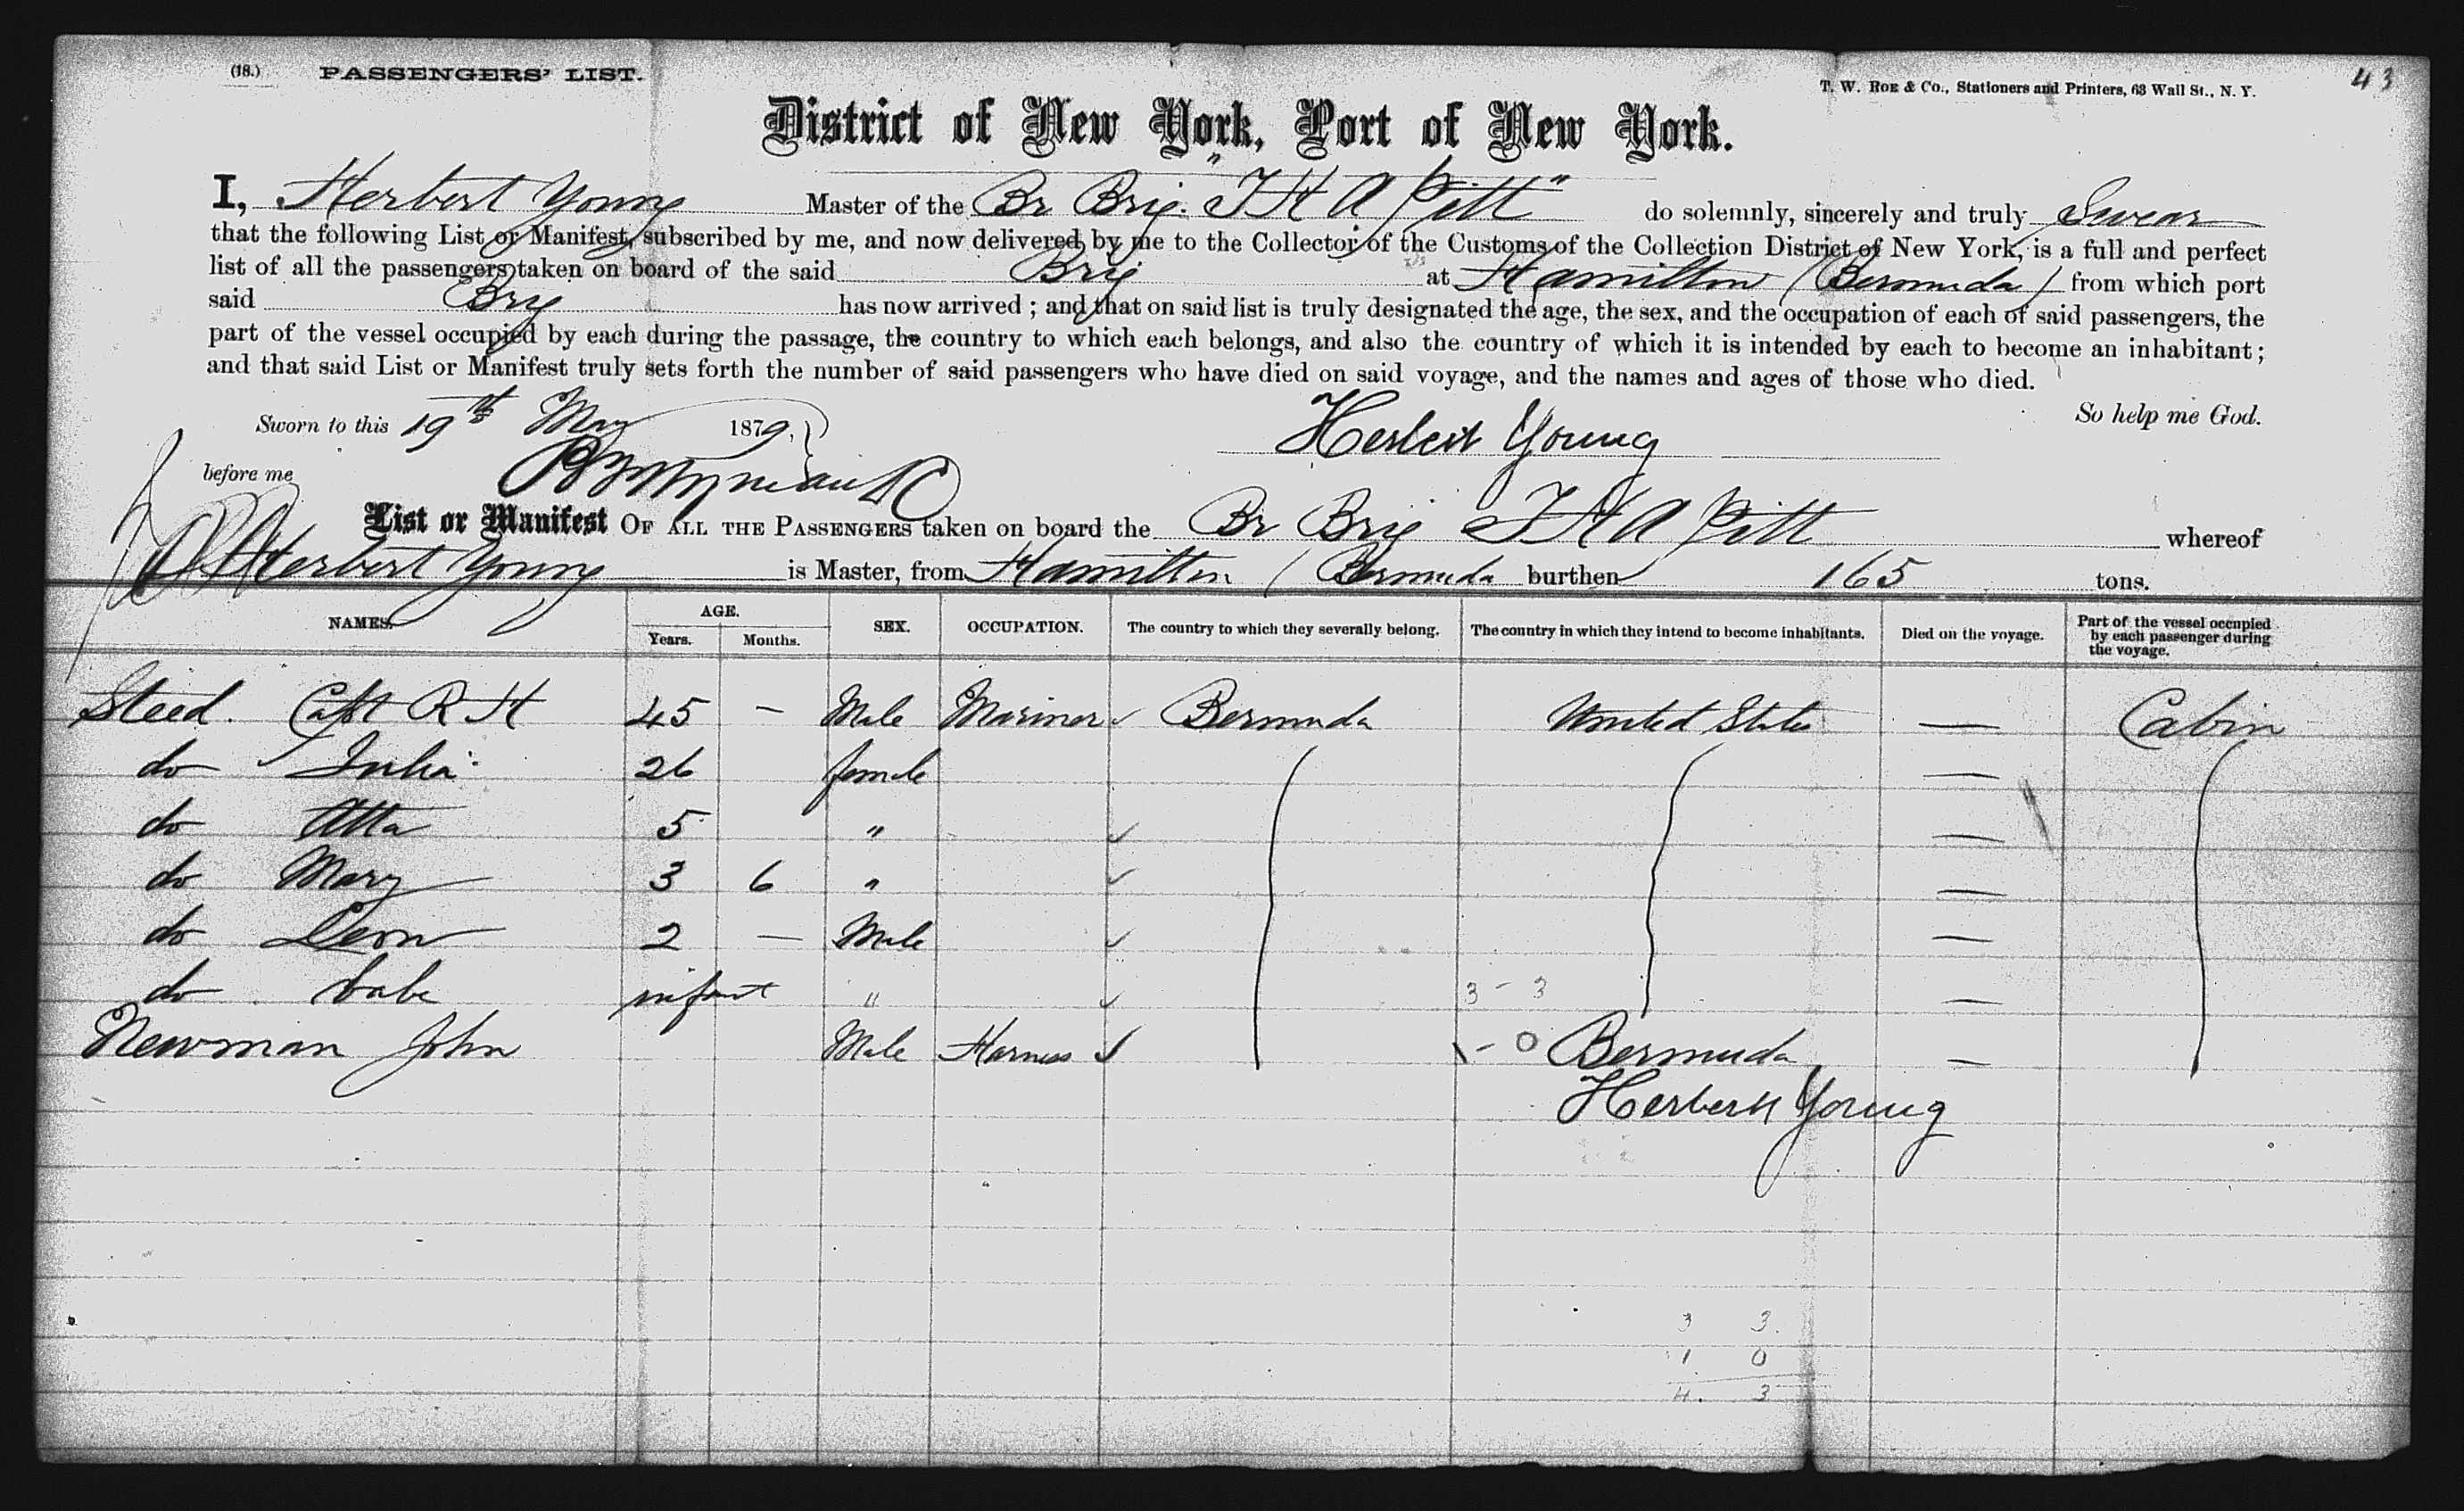 (18.) PASSENGERS' LIST.
T. W. Roe & Co., Stationers and Printers, 63 Wall St., N. Y.
43
District of New York, Port of New York.
I, Herbert Young Master of the Br Brig. "T H A Pitt" do solemnly, sincerely and truly Swear
that the following List or Manifest, subscribed by me, and now delivered by me to the Collector of the Customs of the Collection District of New York, is a full and perfect
list of all the passengers taken on board of the said Brig at Hamilton (Bermuda) from which port
said Brig has now arrived ; and that on said list is truly designated the age, the sex, and the occupation of each of said passengers, the
part of the vessel occupied by each during the passage, the country to which each belongs, and also the country of which it is intended by each to become an inhabitant ;
and that said List or Manifest truly sets forth the number of said passengers who have died on said voyage, and the names and ages of those who died.
So help me God.
Sworn to this 19th May 1879,
Herbert Young
before me
List or Manifest OF ALL THE PASSENGERS taken on board the Br Brig T H A Pitt whereof
Herbert Young is Master, from Hamilton / Bermuda burthen 165 tons.
NAMES. AGE. Years. Months. SEX. OCCUPATION. The country to which they severally belong. The country in which they intend to become inhabitants. Died on the voyage. Part of the vessel occupied by each passenger during the voyage.
Steed. Capt R H 45 — Male Mariner Bermuda United States — Cabin
do Julia 26 female —
do Atta 5 " —
do Mary 3 6 " —
do Leon 2 — Male —
do babe infant " 3 - 3 —
Newman John Male Harness 1 - 0 Bermuda —
Herbert Young
3 3
1 0
4. 3